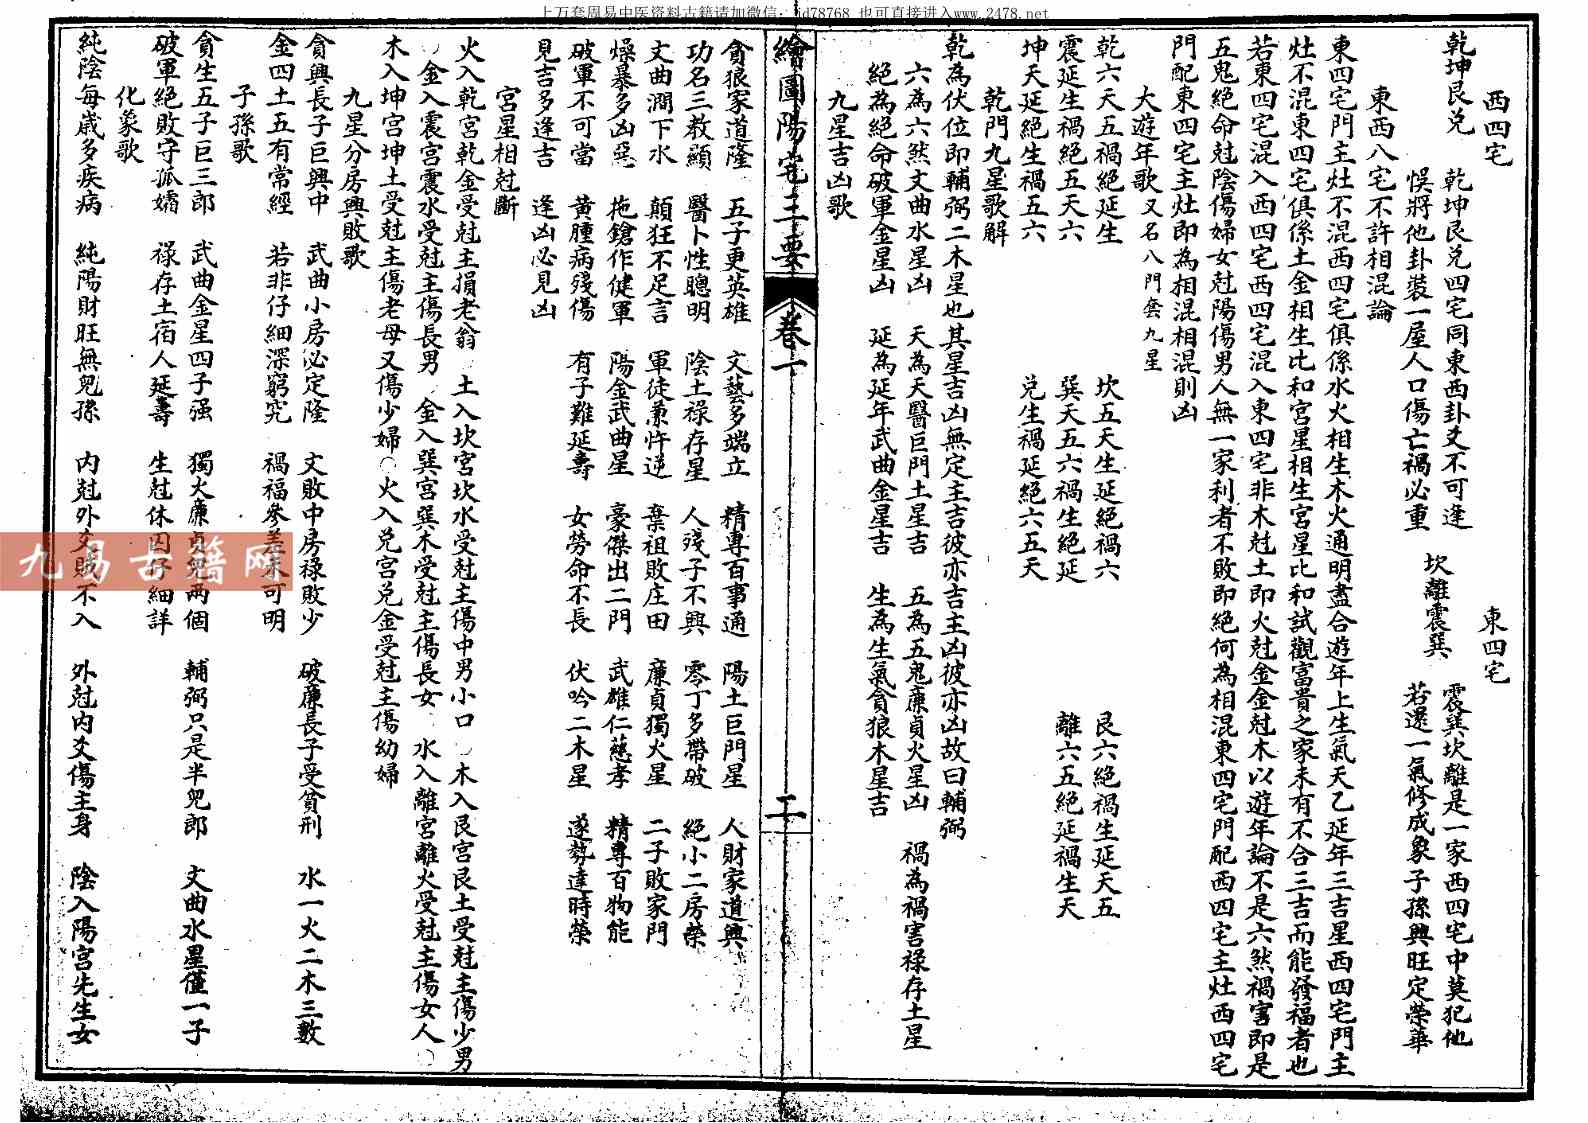 上万套周易中医资料古籍请加微信: id78768 也可直接进入www.2478.net
西四宅 東四宅
乾坤艮兑 乾坤艮兑四宅同東西卦爻不可逢 坎離震巽 震巽坎離是一家西四宅中莫犯他
悮將他卦裝一屋人口傷亡禍必重 若還一氣修成象子孫興旺定榮華
東西八宅不許相混論
東四宅門主灶不混西四宅俱係水火相生木火通明盡合遊年上生氣天乙延年三吉星西四宅門主
灶不混東四宅俱係土金相生比和宮星相生宮星比和試觀富貴之家未有不合三吉而能發福者也
若東四宅混入西四宅西四宅混入東四宅非木尅土即火尅金金尅木以遊年論不是六然禍害即是
五鬼絕命尅陰傷婦女尅陽傷男人無一家利者不敗即絕何為相混東四宅門配西四宅主灶西四宅
門配東四宅主灶即為相混相混則凶
大遊年歌又名八門套九星
乾六天五禍絕延生 坎五天生延絕禍六 艮六絕禍生延天五
震延生禍絕五天六 巽天五六禍生絕延 離六五絕延禍生天
坤天延絕生禍五六 兑生禍延絕六五天
乾門九星歌解
乾為伏位即輔弼二木星也其星吉凶無定主吉彼亦吉主凶彼亦凶故曰輔弼
六為六然文曲水星凶 天為天醫巨門土星吉 五為五鬼廉貞火星凶 禍為禍害祿存土星
絕為絕命破軍金星凶 延為延年武曲金星吉 生為生氣貪狼木星吉
九星吉凶歌
繪圖陽宅三要 卷一 二
貪狼家道隆 五子更英雄 文藝多端立 精專百事通 陽土巨門星 人財家道興
功名三教顯 醫卜性聰明 陰土祿存星 人殘子不興 零丁多帶破 絕小二房榮
文曲澗下水 顛狂不足言 軍徒兼忤逆 棄祖敗庄田 廉貞獨火星 二子敗家門
燥暴多凶惡 拖鎗作健軍 陽金武曲星 豪傑出二門 武雄仁慈孝 精專百物能
破軍不可當 黃腫病殘傷 有子難延壽 女勞命不長 伏吟二木星 遂勢達時榮
見吉多逢吉 逢凶必見凶
宮星相尅斷
火入乾宮乾金受尅主損老翁 土入坎宮坎水受尅主傷中男小口 木入艮宮艮土受尅主傷少男
金入震宮震水受尅主傷長男 金入巽宮巽木受尅主傷長女 水入離宮離火受尅主傷女人○
木入坤宮坤土受尅主傷老母又傷少婦○火入兑宮兑金受尅主傷幼婦
九星分房興敗歌
貪興長子巨興中 武曲小房必定隆 文敗中房祿敗少 破廉長子受貧刑 水一火二木三數
金四土五有常經 若非仔細深窮究 禍福參差未可明
子孫歌
貪生五子巨三郎 武曲金星四子强 獨火廉貞兒兩個 輔弼只是半兒郎 文曲水星僅一子
破軍絕敗守孤孀 祿存土宿人延壽 生尅休囚仔細詳
化象歌
純陰每歲多疾病 純陽財旺無兒孫 內尅外爻賊不入 外尅內爻傷主身 陰入陽宮先生女
九易古籍网